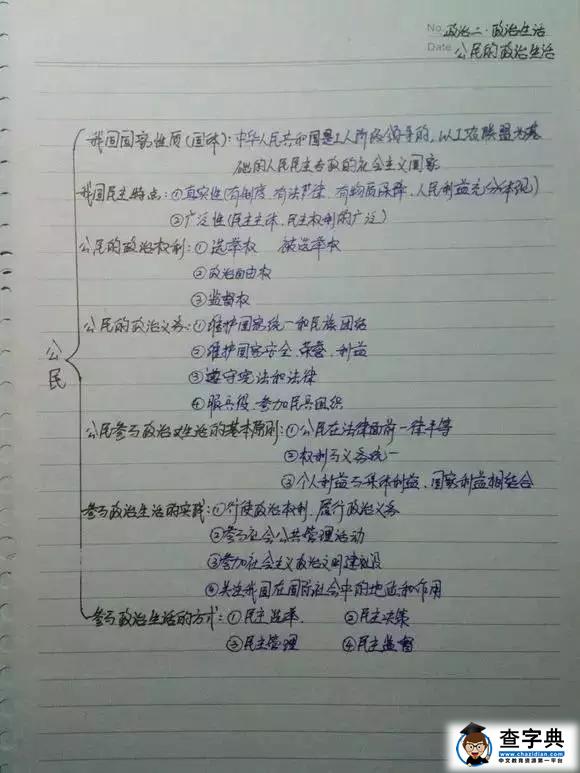 No. 政治二·政治生活
Date 公民的政治生活
我国国家性质(国体):中华人民共和国是工人阶级领导的,以工农联盟为基
础的人民民主专政的社会主义国家
我国民主特点:①真实性(有制度、有法律、有物质保障、人民利益充分体现)
②广泛性(民主主体、民主权利的广泛)
公民的政治权利:①选举权 被选举权
②政治自由权
③监督权
公民的政治义务:①维护国家统一和民族团结
②维护国家安全、荣誉、利益
③遵守宪法和法律
④服兵役、参加民兵组织
公民
公民参与政治生活的基本原则:①公民在法律面前一律平等
②权利与义务统一
③个人利益与集体利益、国家利益相结合
参与政治生活的实践:①行使政治权利、履行政治义务
②参与社会公共管理活动
③参加社会主义政治文明建设
④关注我国在国际社会中的地位和作用
参与政治生活的方式:①民主选举 ②民主决策
③民主管理 ④民主监督
查字典
www.chazidian.com
中文教育资源第一平台